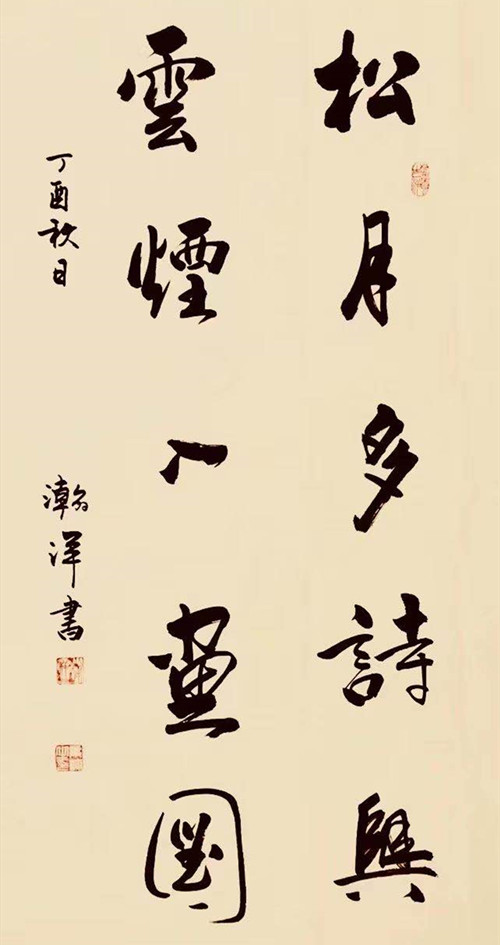 松月多詩興
雲煙入畫圖
丁酉秋日
瀚洋書